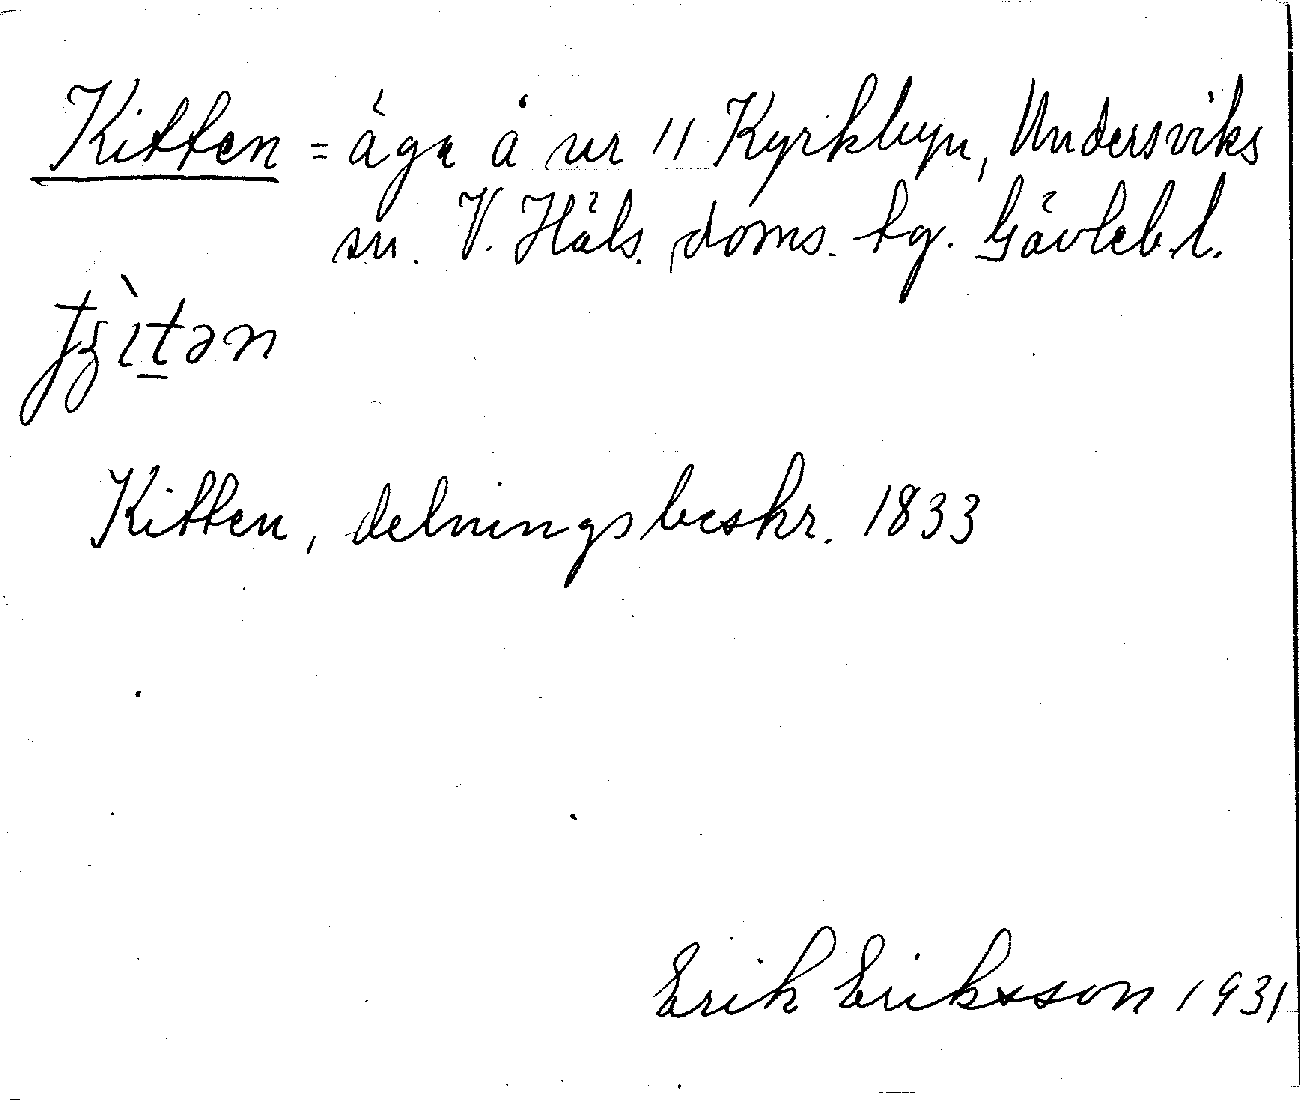 Kitten = äga å nr 11 Kyrkbyn, Undersviks
sn. V. Häls. doms. tg. Gävleb.l.
Kitten, delningsbeskr. 1833
Erik Eriksson 1931